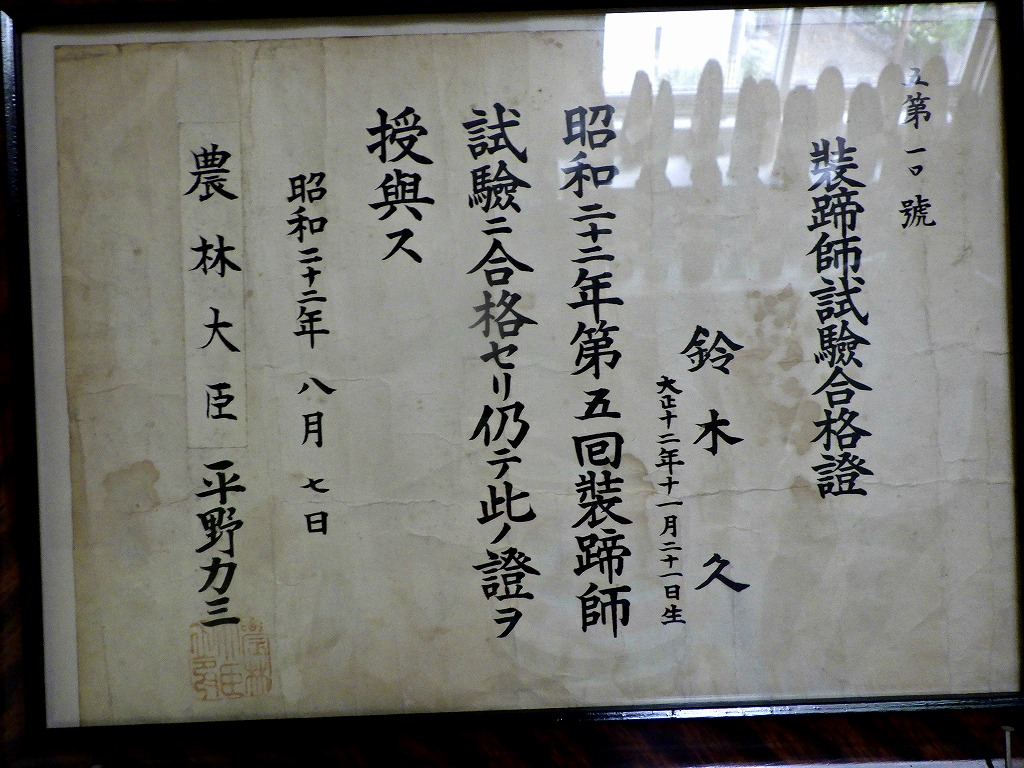 五第一〇號
裝蹄師試驗合格證
鈴木久
大正十二年十一月二十一日生
昭和二十二年第五回裝蹄師
試驗ニ合格セリ仍テ此ノ證ヲ
授與ス
昭和二十二年八月七日
農林大臣平野力三
農林大臣之印